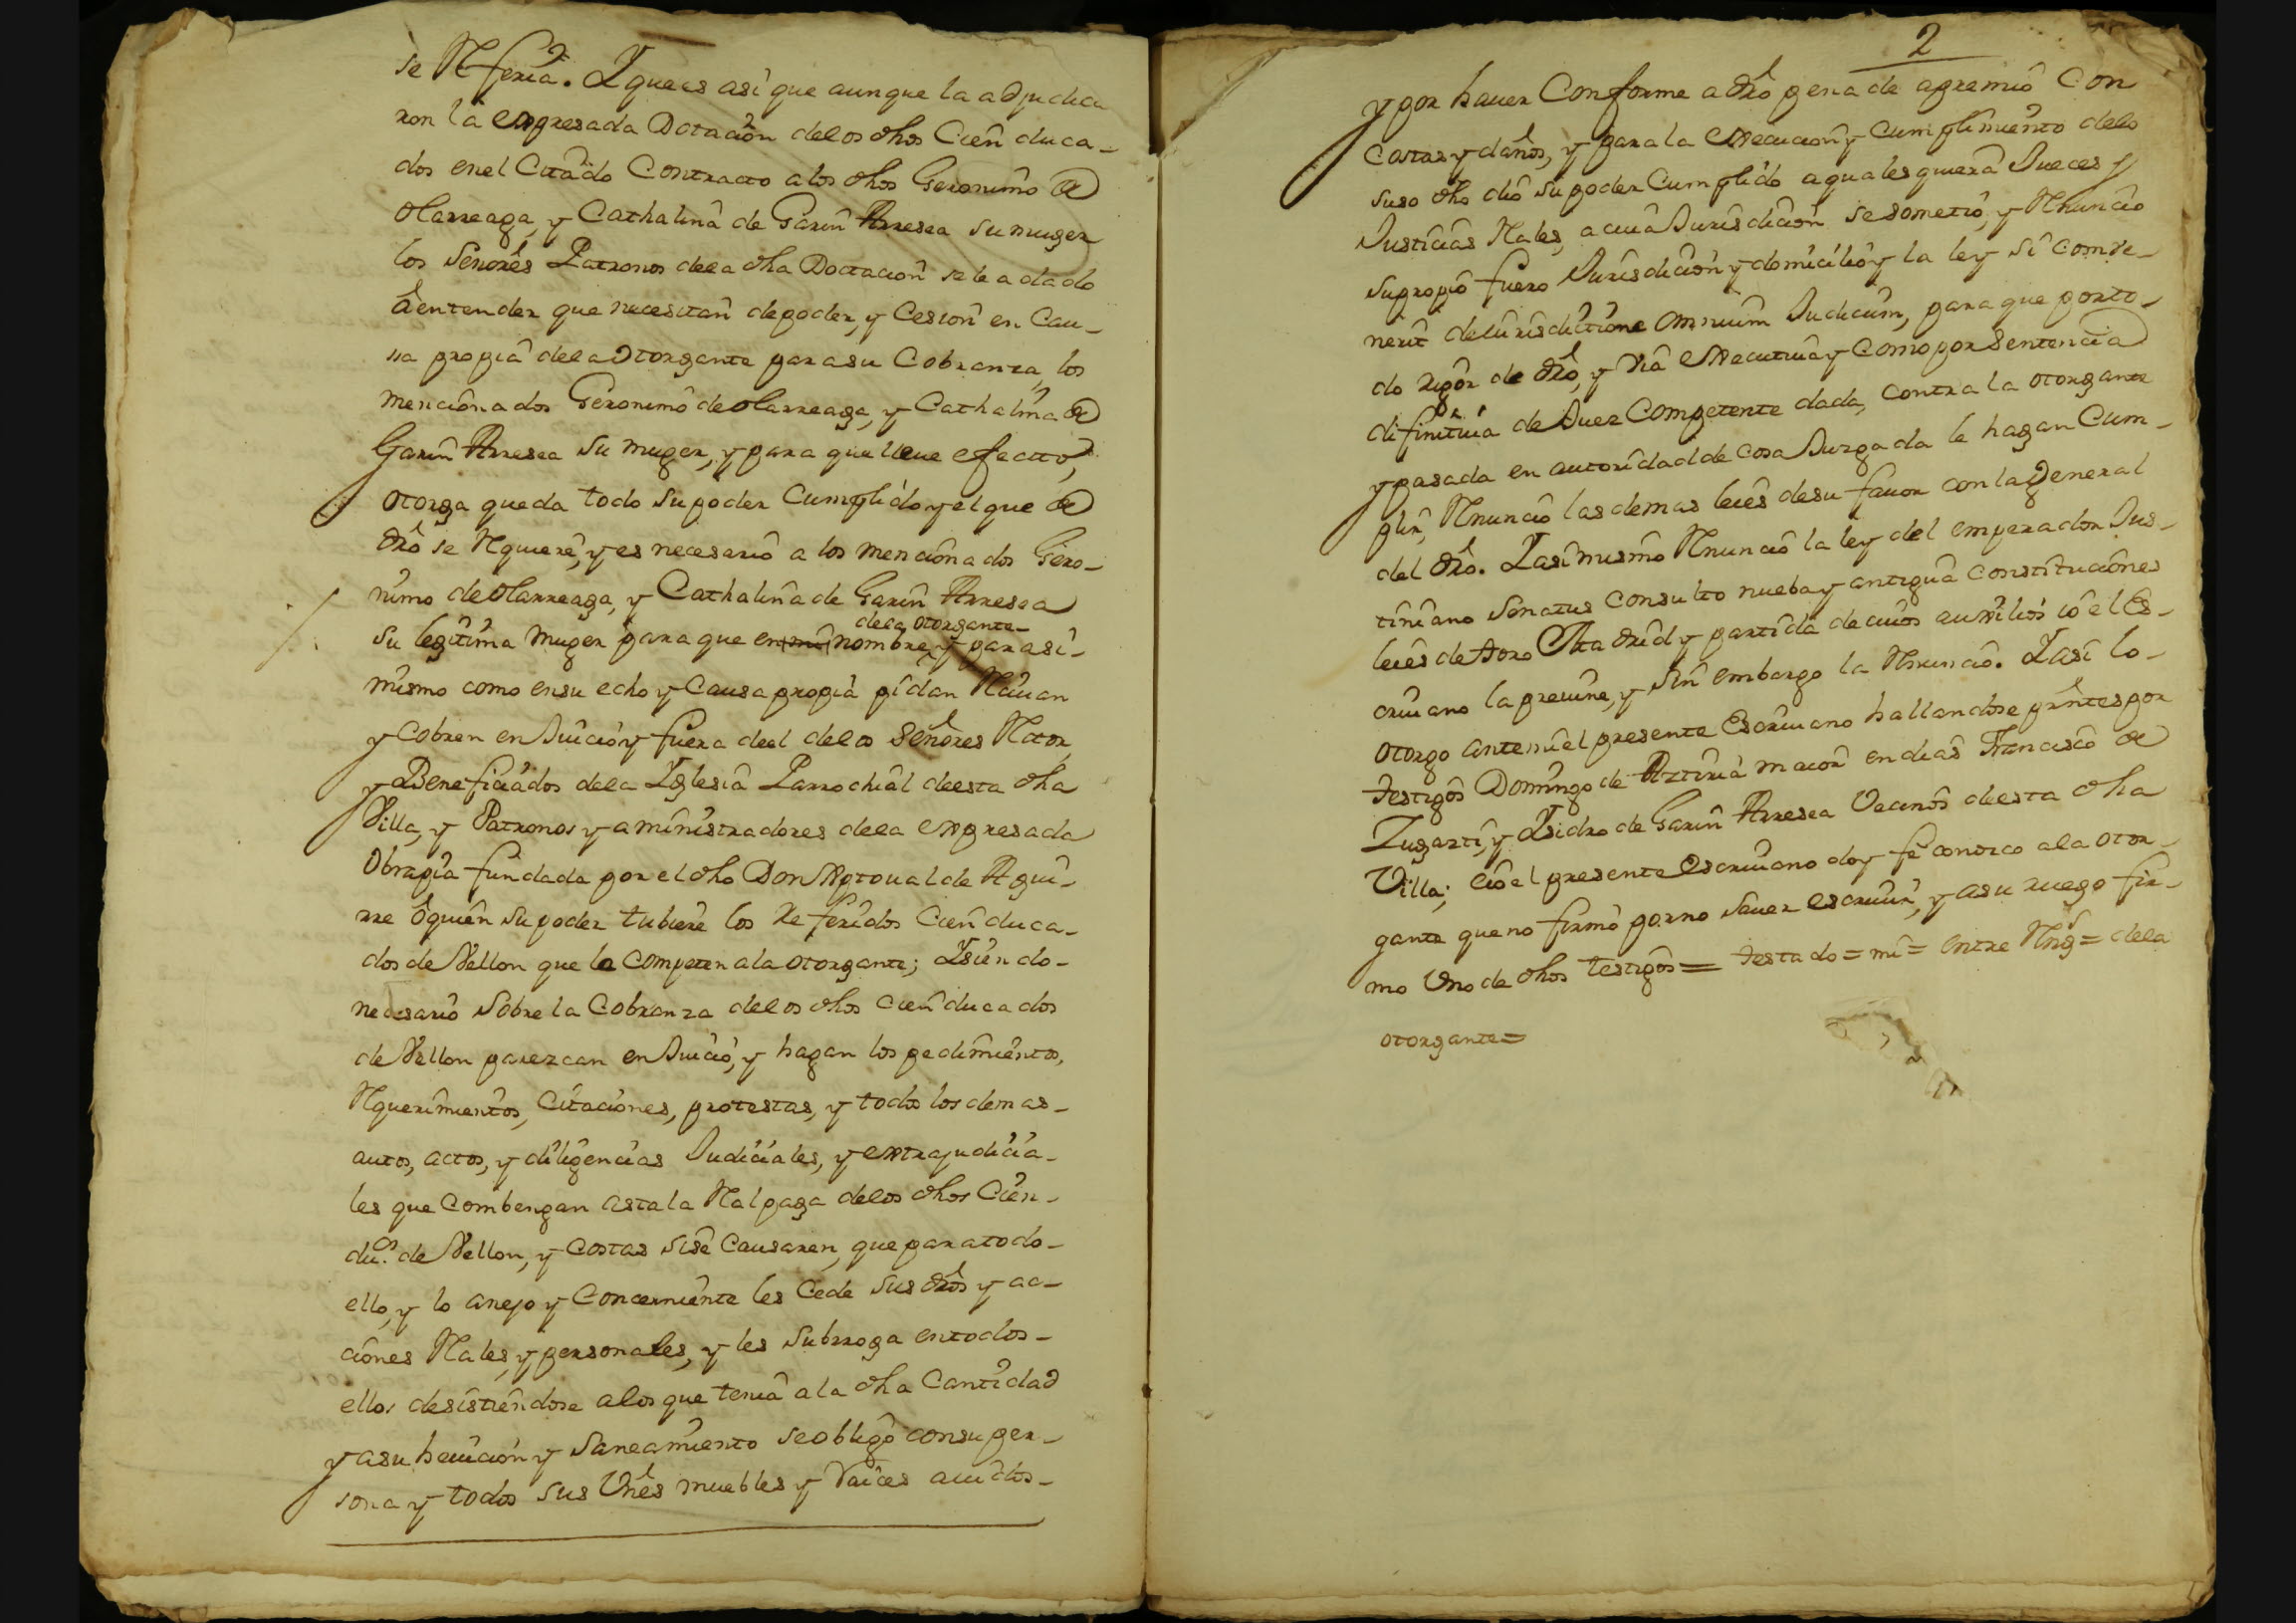 se Referia. Y que es así que aunque la adjudica
ron la expresada Dotacion de los dhos Cien duca-
dos en el Citado Contracto a los dhos Geronimo de
Olarreaga, y Cathalina de Garin Arresea su muger
los Señores Patronos de la dha Doctacion se le a dado
a entender que necesitan de poder, y Cesion en Cau-
sa propia de la Otorgante para su Cobranza, los
mencionados Geronimo de Olarreaga, y Cathalina de
Garin Arresea su muger, y para que lleue efecto,
otorga que da todo su poder Cumplido y el que de
dro se Requiere, y es necesario a los mencionados Gero-
nimo de Olarreaga, y Cathalina de Garin Arresea
dela otorgante-
su legitima muger para que en mi nombre, y para si-
mismo como en su echo y Causa propia pidan Reciuan
y Cobren en Juicio y fuera de el de los Señores Retor,
y Beneficiados de la Yglesia Parrochial de esta dha
Villa, y Patronos y aministradores de la expresada
Obrapia fundada por el dho Don Xptoual de Agui-
rre o quien su poder tubiere los referidos Cien duca-
dos de Vellon que le Competen a la otorgante; Y sien do-
necesario sobre la Cobranza de los dhos Cien ducados
de Vellon parezcan en Juicio, y hagan los pedimientos,
Requerimientos, Citaciones, protestas, y todos los demas-
autos, actos, y diligencias Judiciales, y extrajudicia-
les que Combengan asta la Real paga de los dhos Cien-
du.os de Vellon, y Costas si se Causaren, que para todo-
ello, y lo anejo y Concerniente les Cede sus dros y ac-
ciones Reales, y personales, y les subrroga en todos-
ellos desistiendose a los que tenia a la dha Cantidad
y a su heuicion y saneamiento se obligo con su per-
sona y todos sus Vnes muebles y raices auidos-
2
y por hauer Conforme a dro pena de apremio Con
Costas y daños, y para la execucion y Cumplimiento de lo
suso dho dio su poder Cumplido a qualesquiera Jueces y
Justicias Reales, a cuia Jurisdicion se sometio, y Renuncio
su propio fuero Jurisdicion y domicilio y la ley si Combe-
nerit de Jurisdictione omnium Judicum, para que por to-
do rigor de dro, y via executiua y Como por Sentencia
difinitiua de Juez Competente dada, contra la otorgante
y pasada en autoridad de Cosa Juzgada le hagan Cum-
plir, Renuncio las demas leies de su fauor con la General
del dro. Y asi mismo Renuncio la ley del emperador Jus-
tiniano senatus consulto nueba y antigua constituciones
leies de toro Madrid y partida de cuios auxilios io el Es-
criuano la preuine, y sin embargo la Renuncio. Y asi lo-
otorgo ante mi el presente Escriuano hallandose prntes por
testigos Domingo de Aztiria maior en dias Francisco de
Zugarti, y Ysidro de Garin Arresea Vecinos de esta dha
Villa; e io el presente Escriuano doy fe conozco a la otor-
gante que no firmo por no sauer escriuir, y a su ruego fir-
mo Vno de dhos testigos= testado= mi= entre Rengs= de la
otorgante=